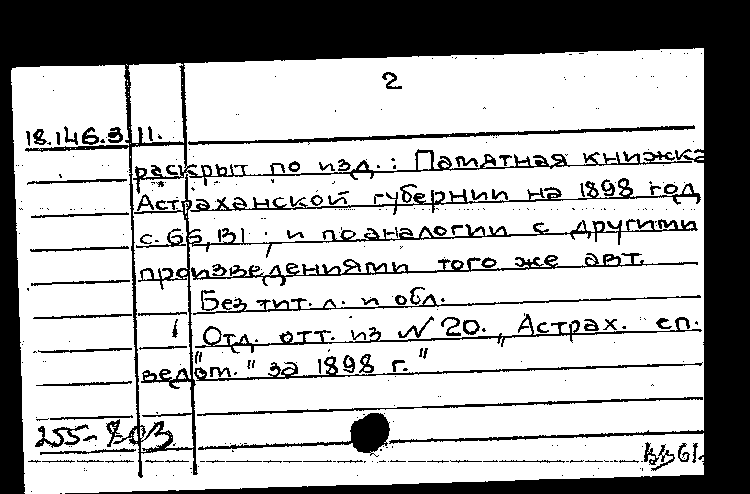 2
18.146.3.11.
раскрыт по изд.: Памятная книжка
Астраханской губернии на 1898 год
с. 66, 131 ; и по аналогии с другими
произведениями того же авт.
Без тит. л. и обл.
Отд. отт. из № 20. „Астрах. еп.
ведом." за 1898 г."
255-803
61.